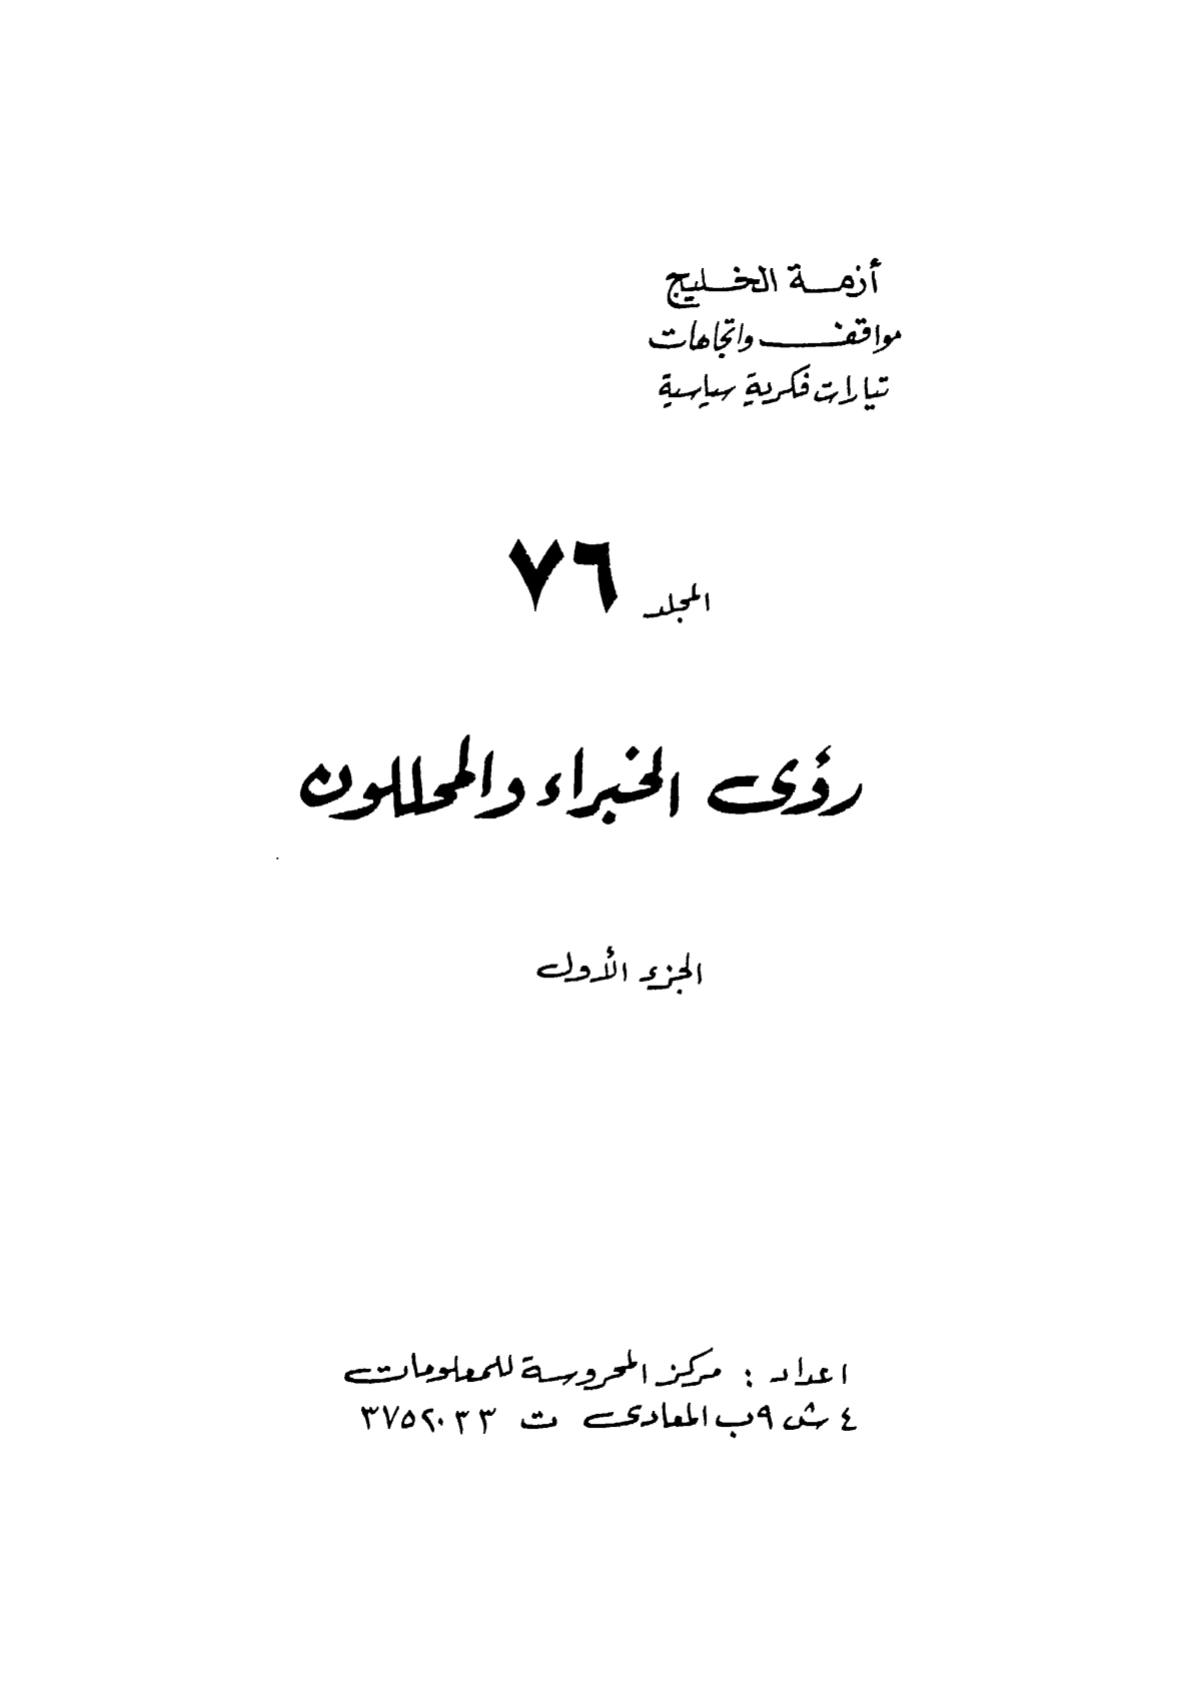 أزمة الخليج
مواقف واتجاهات
تيارات فكرية سياسية
المجلد ٧٦
رؤى الخبراء والمحللون
الجزء الأول
اعداد : مركز المحروسة للمعلومات
٤ ش ٩ب المعادى ت ٣٧٥٢٠٣٣